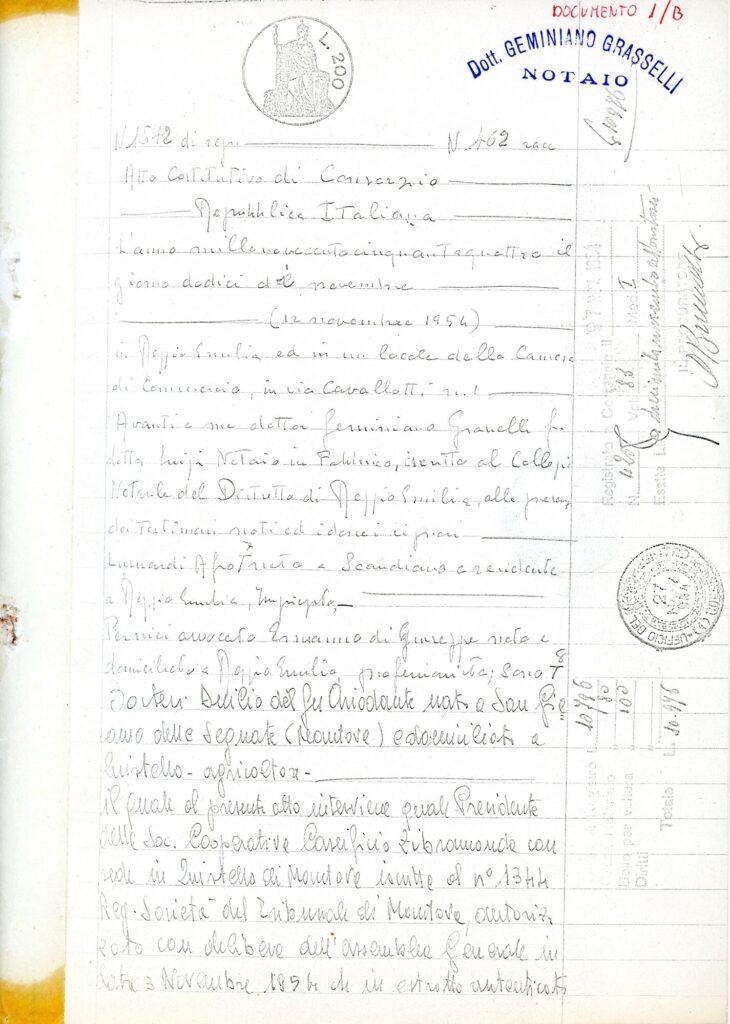 DOCUMENTO 1/B
Dott. GEMINIANO GRASSELLI
NOTAIO
L. 200
N 1542 di rep. N 462 racc
Atto Costitutivo di Consorzio
Repubblica Italiana
L'anno millenovecentocinquantaquattro il
giorno dodici di novembre
(12 novembre 1954)
in Reggio Emilia ed in un locale della Camera
di Commercio, in via Cavallotti n. 1
Avanti a me dottor Geminiano Grasselli fu
dottor Luigi Notaio in Fabbrico, iscritto al Collegio
Notarile del Distretto di Reggio Emilia, alla presenza
dei testimoni noti ed idonei signori
Lumardi Afro nato a Scandiano e residente
a Reggio Emilia, Impiegato
avvocato Ermanno di Giuseppe nato e
domiciliato a Reggio Emilia, professionista; sono
Duilio del fu Oriodante nato a San Gia
como delle Segnate (Mantova) e domiciliato a
Quistello - agricoltore -
il quale al presente atto interviene quale Presidente
della Soc. Cooperativa Caseificio Zibramonda con
sede in Quistello di Mantova iscritta al n° 1344
Reg. Società del Tribunale di Mantova, autoriz
zato con delibera dell'assemblea Generale in
data 3 Novembre 1954 che in estratto autenticato
Registrato a Correggio il
N. 428 Vol. 83 Mod. I
Esatte Lire
IL PROCURATORE
10796
Bollo per voltura
Diritti
Totale L. 10.976